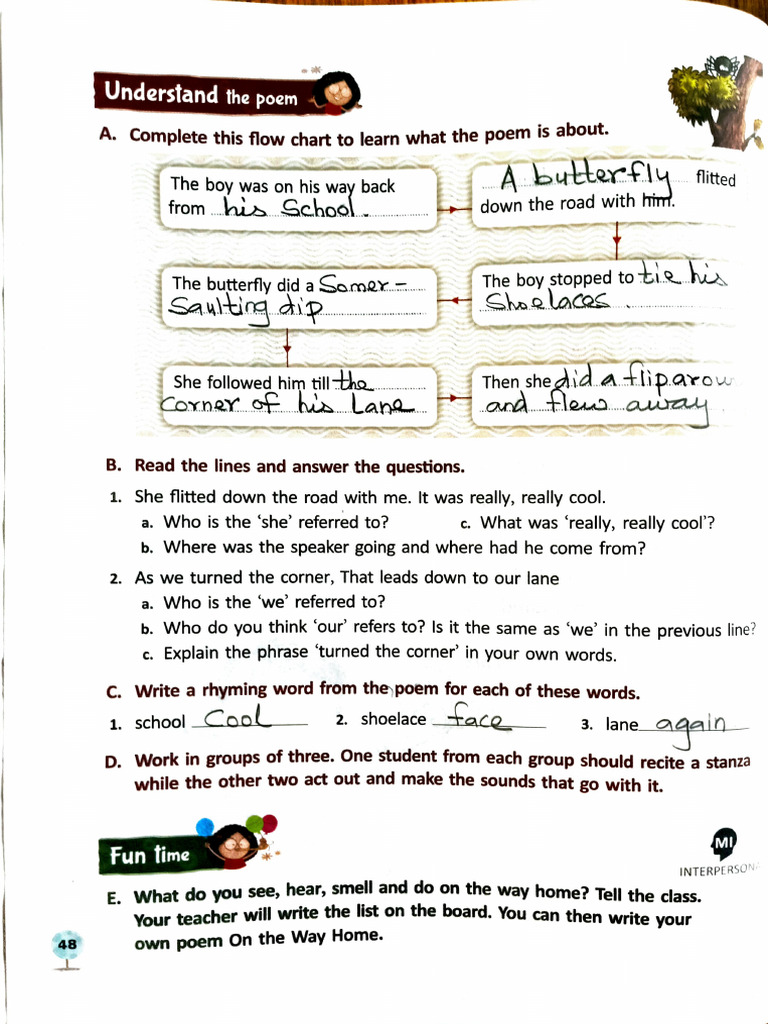 Understand the poem
A. Complete this flow chart to learn what the poem is about.
The boy was on his way back
from his School.
A butterfly flitted
down the road with him.
The boy stopped to tie his
Shoelaces.
The butterfly did a Somer-
Saulting dip
She followed him till the
Corner of his Lane
Then she did a flip arow
and flew away.
B. Read the lines and answer the questions.
1. She flitted down the road with me. It was really, really cool.
a. Who is the ‘she’ referred to? c. What was ‘really, really cool’?
b. Where was the speaker going and where had he come from?
2. As we turned the corner, That leads down to our lane
a. Who is the ‘we’ referred to?
b. Who do you think ‘our’ refers to? Is it the same as ‘we’ in the previous line?
c. Explain the phrase ‘turned the corner’ in your own words.
C. Write a rhyming word from the poem for each of these words.
1. school Cool 2. shoelace face 3. lane again
D. Work in groups of three. One student from each group should recite a stanza
while the other two act out and make the sounds that go with it.
Fun time
MI
INTERPERSONA
E. What do you see, hear, smell and do on the way home? Tell the class.
Your teacher will write the list on the board. You can then write your
own poem On the Way Home.
48